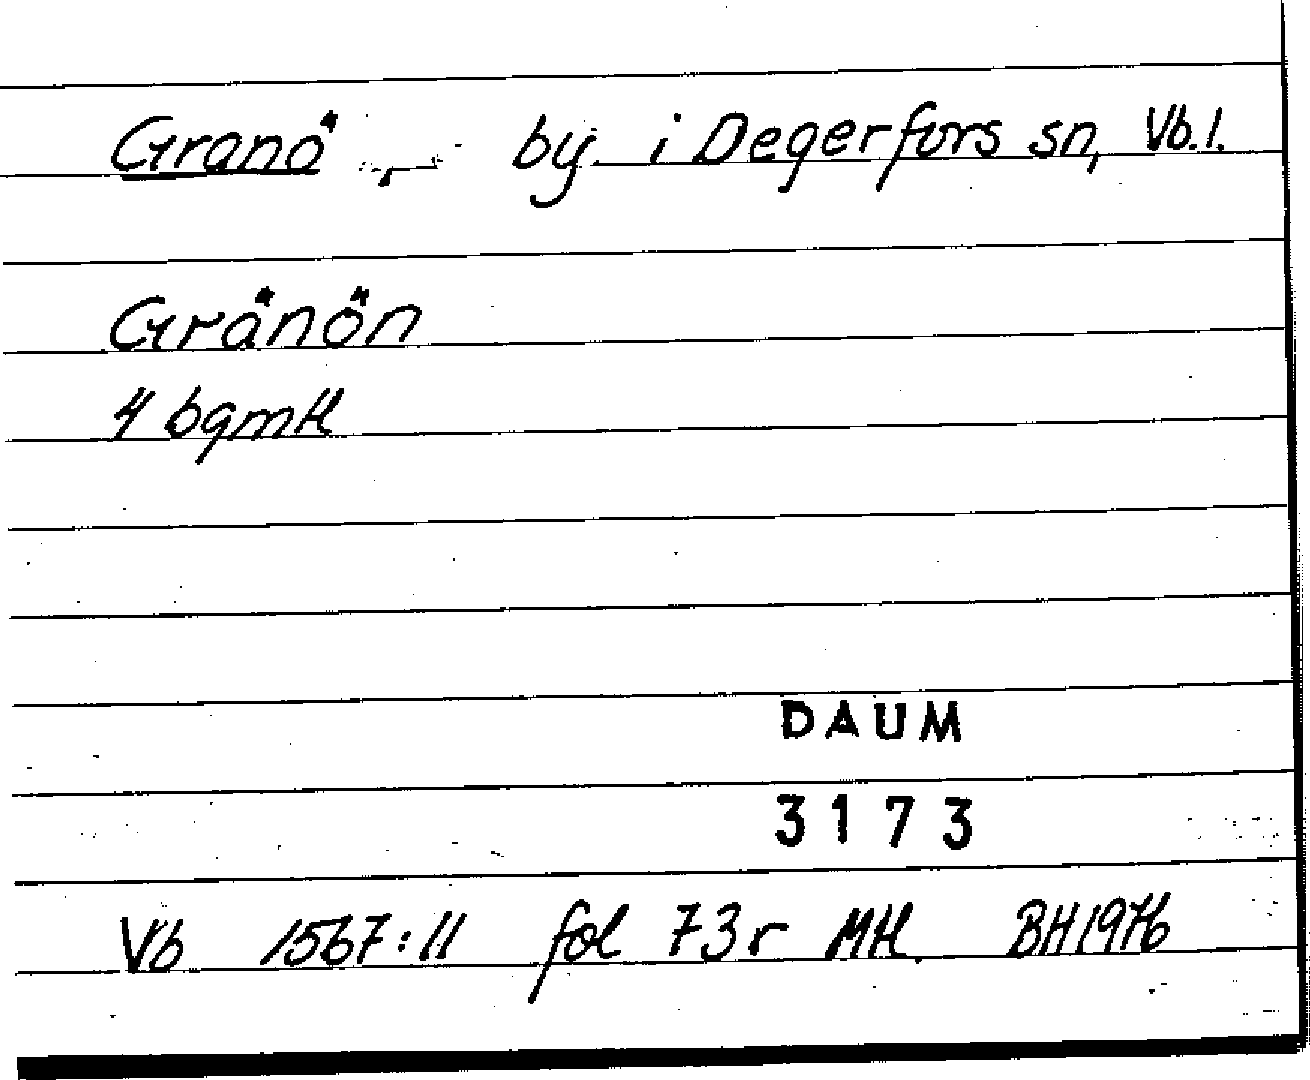 Granö, by i Degerfors sn, Vb.l.
Gränön
4 bgmtl
DAUM
3173
Vb 1567:11 fol 73r MtL BH1976